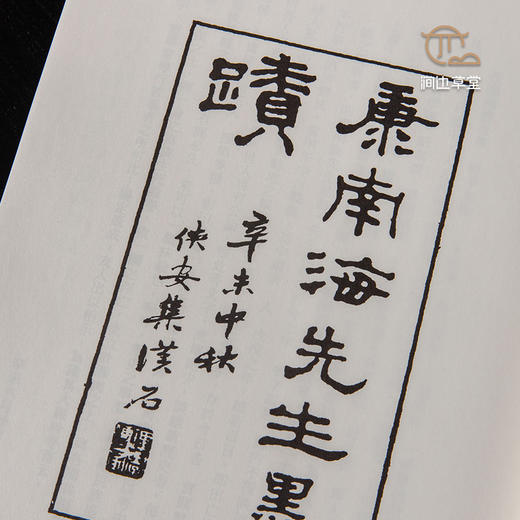 康南海先生墨
蹟
辛未中秋
俠安集漢石
涧边草堂